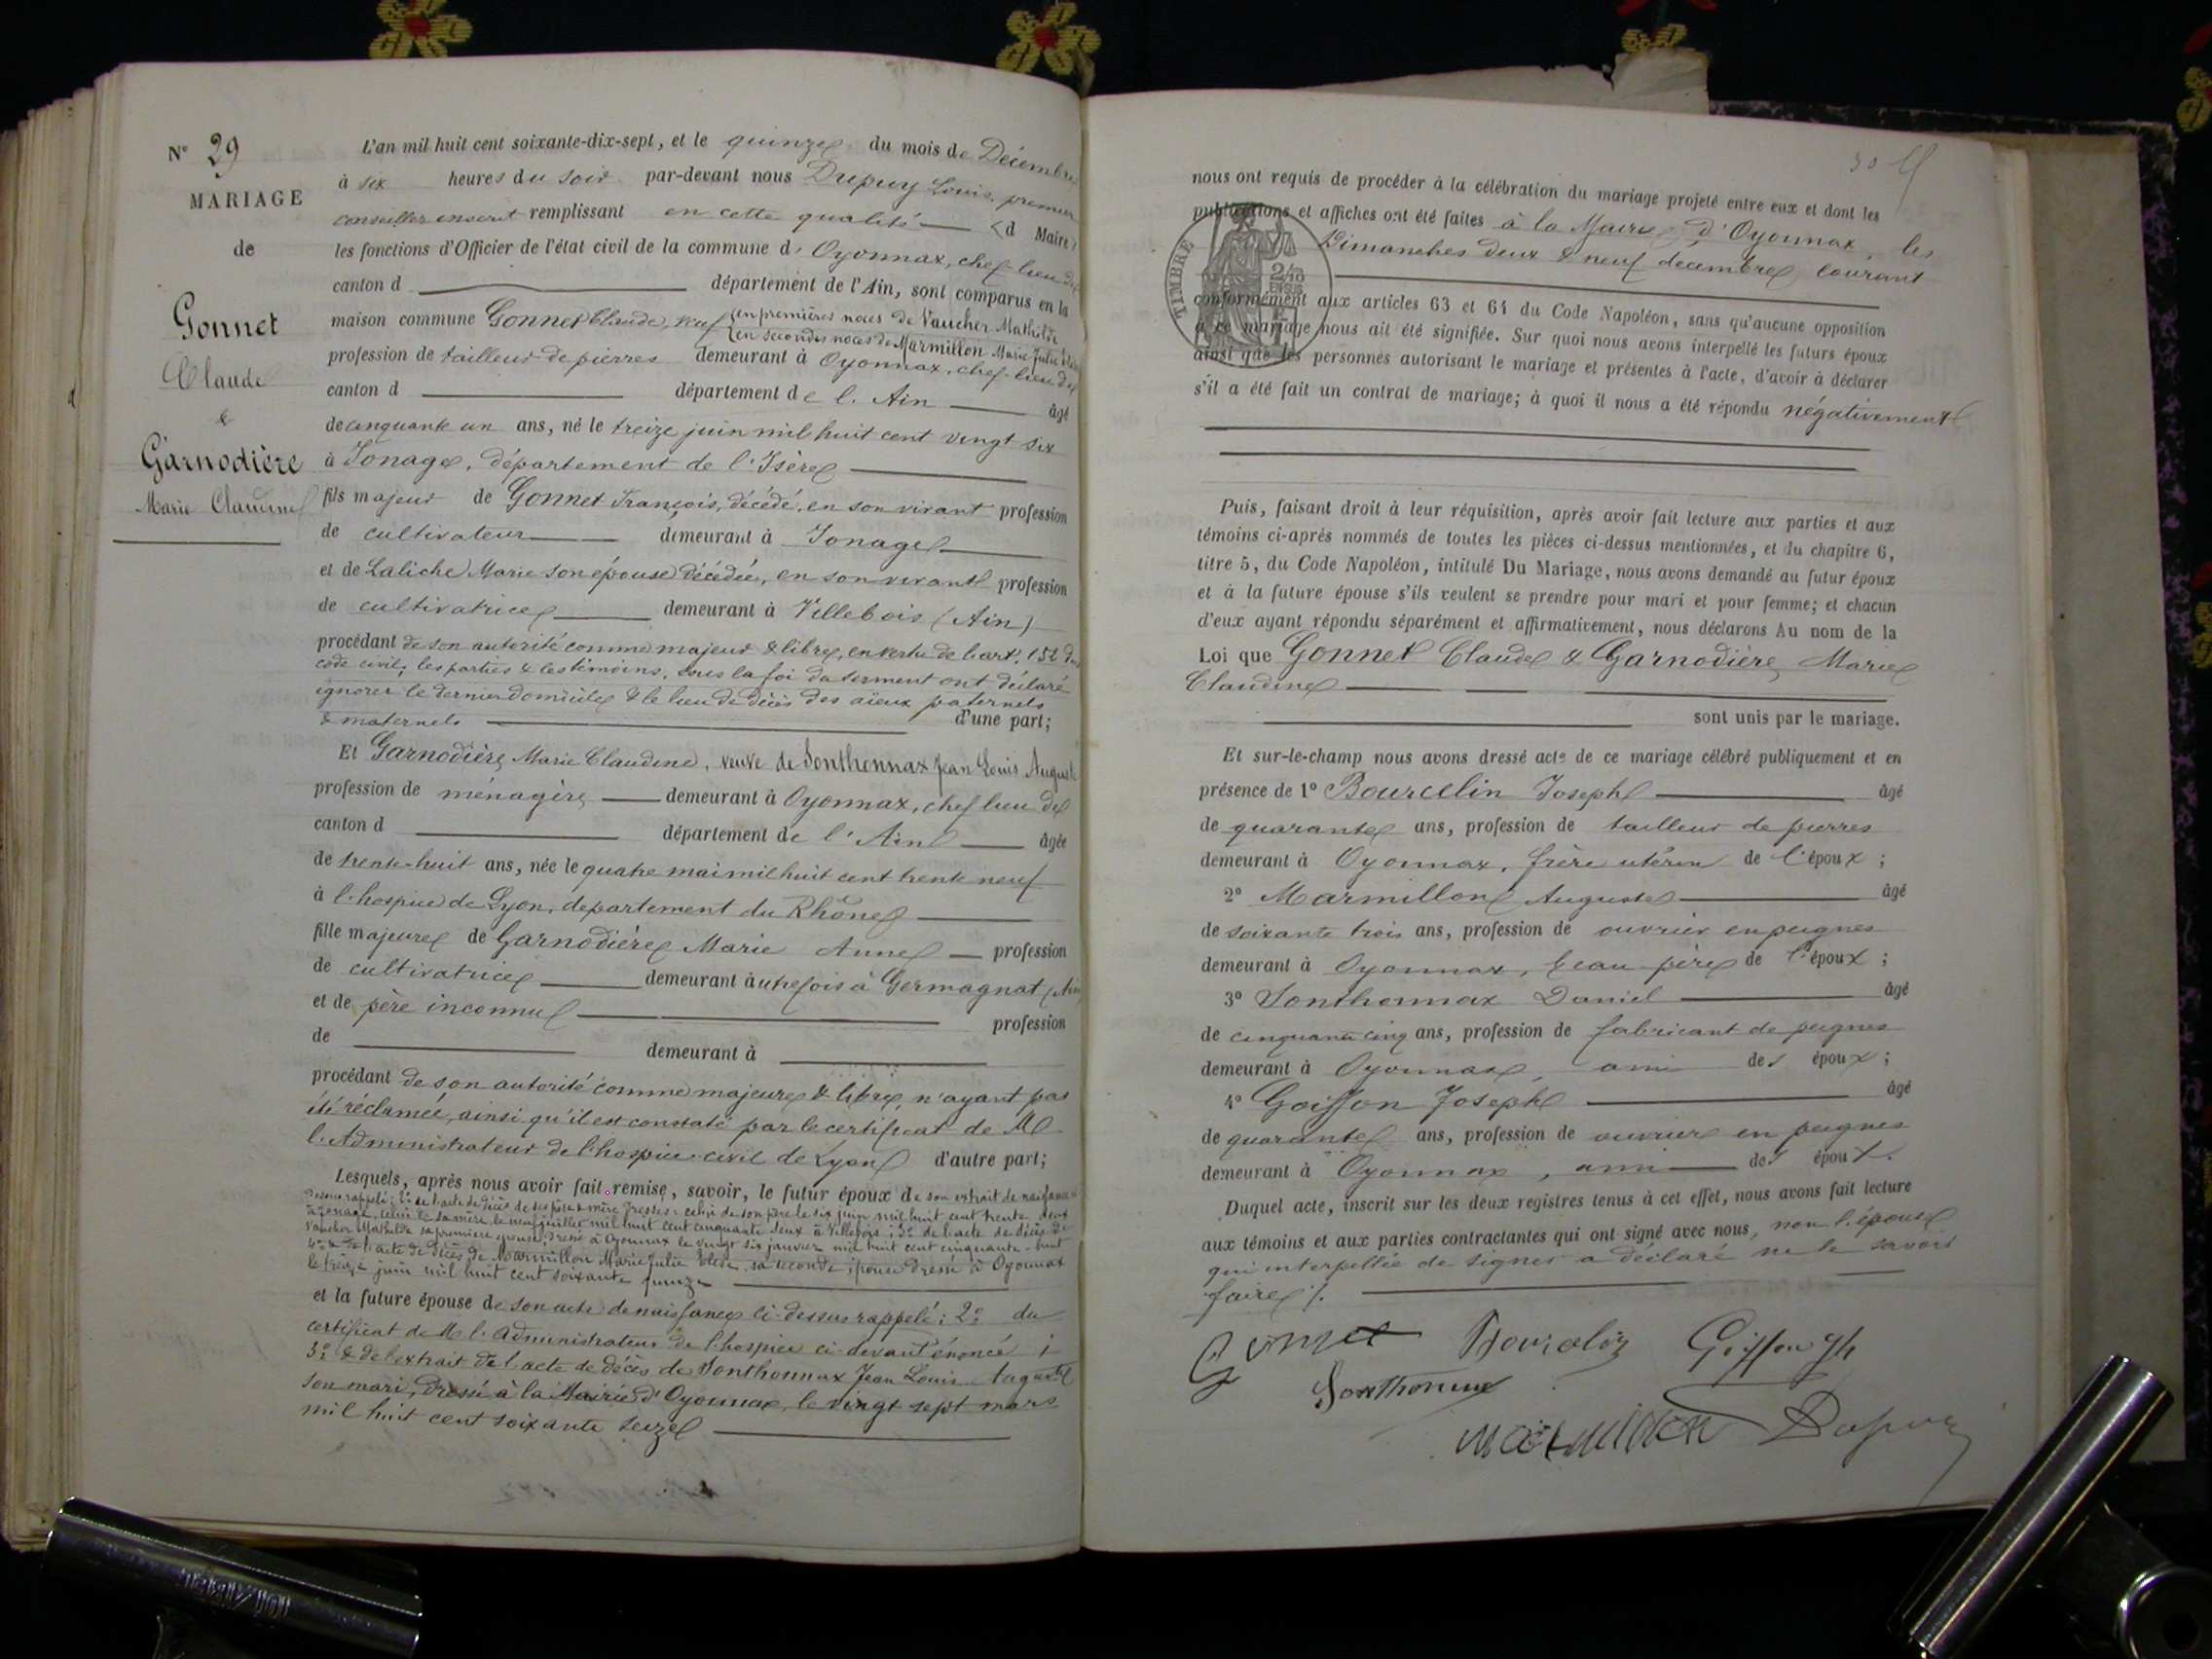 N° 29
MARIAGE
de
Gonnet
Claude
&
Garnodière
Marie Claudine
L'an mil huit cent soixante-dix-sept, et le quinze du mois de Décembre
à six heures du soir par-devant nous Dupuy Louis, premier
conseiller inscrit remplissant en cette qualité d Maire
les fonctions d'Officier de l'état civil de la commune d'Oyonnax, chef-lieu de
canton d département de l'Ain, sont comparus en la
maison commune Gonnet Claude, veuf en premières noces de Vaucher Mathilde
en secondes noces de Marmillon Marie Julie
profession de tailleur de pierres demeurant à Oyonnax, chef-lieu de
canton d département de l'Ain âgé
de cinquante un ans, né le treize juin mil huit cent vingt six
à Jonage, département de l'Isère
fils majeur de Gonnet François, décédé, en son vivant profession
de cultivateur demeurant à Jonage
et de Laliche Marie son épouse décédée, en son vivant profession
de cultivatrice demeurant à Villebois (Ain)
procédant de son autorité comme majeur & libre, en vertu de l'art. 152 du
code civil, les parties & les témoins, sous la foi du serment ont déclaré
ignorer le dernier domicile & le lieu de décès des aïeux paternels
& maternels d'une part;
Et Garnodière Marie Claudine, veuve de Sonthonnax Jean Louis Auguste
profession de ménagère demeurant à Oyonnax, chef lieu de
canton d département de l'Ain âgée
de trente-huit ans, née le quatre mai mil huit cent trente neuf
à l'hospice de Lyon, département du Rhône
fille majeure de Garnodière Marie Anne profession
de cultivatrice demeurant autrefois à Germagnat (Ain
et de père inconnu profession
de demeurant à
procédant de son autorité comme majeure & libre, n'ayant pas
été réclamée, ainsi qu'il est constaté par le certificat de M
l'Administrateur de l'hospice civil de Lyon d'autre part;
Lesquels, après nous avoir fait remise, savoir, le futur époux de son extrait de naissance
dessus rappelé; 2° de l'acte de décès de ses père & mère dressés: celui de son père le six juin mil huit cent trente deux
à Jonage, celui de sa mère, le neuf juillet mil huit cent cinquante deux à Villebois; 3° de l'acte de décès de
Vaucher Mathilde sa première épouse, dressé à Oyonnax le vingt six janvier mil huit cent cinquante-huit
4° & de l'acte de décès de Marmillon Marie Julie Elise, sa seconde épouse dressé à Oyonnax
le treize juin mil huit cent soixante quinze
et la future épouse de son acte de naissance ci-dessus rappelé; 2° du
certificat de M l'Administrateur de l'hospice ci-devant énoncé;
3° & de l'extrait de l'acte de décès de Sonthonnax Jean Louis Auguste
son mari, dressé à la Mairie d'Oyonnax, le vingt sept mars
mil huit cent soixante seize
nous ont requis de procéder à la célébration du mariage projeté entre eux et dont les
publications et affiches ont été faites à la Mairie d'Oyonnax, les
Dimanches deux & neuf décembre courant
TIMBRE
conformément aux articles 63 et 64 du Code Napoléon, sans qu'aucune opposition
à ce mariage nous ait été signifiée. Sur quoi nous avons interpellé les futurs époux
ainsi que les personnes autorisant le mariage et présentes à l'acte, d'avoir à déclarer
s'il a été fait un contrat de mariage; à quoi il nous a été répondu négativement
Puis, faisant droit à leur réquisition, après avoir fait lecture aux parties et aux
témoins ci-après nommés de toutes les pièces ci-dessus mentionnées, et du chapitre 6,
titre 5, du Code Napoléon, intitulé Du Mariage, nous avons demandé au futur époux
et à la future épouse s'ils veulent se prendre pour mari et pour femme; et chacun
d'eux ayant répondu séparément et affirmativement, nous déclarons Au nom de la
Loi que Gonnet Claude & Garnodière Marie
Claudine
sont unis par le mariage.
Et sur-le-champ nous avons dressé acte de ce mariage célébré publiquement et en
présence de 1° Bourcelin Joseph âgé
de quarante ans, profession de tailleur de pierres
demeurant à Oyonnax, frère utérin de l'époux;
2° Marmillon Auguste âgé
de soixante trois ans, profession de ouvrier en peignes
demeurant à Oyonnax, beau père de l'époux;
3° Sonthonnax Daniel âgé
de cinquante cinq ans, profession de fabricant de peignes
demeurant à Oyonnax, ami des époux;
4° Goiffon Joseph âgé
de quarante ans, profession de ouvrier en peignes
demeurant à Oyonnax, ami des époux.
Duquel acte, inscrit sur les deux registres tenus à cet effet, nous avons fait lecture
aux témoins et aux parties contractantes qui ont signé avec nous, non l'épouse
qui interpellée de signer a déclaré ne le savoir
faire ./.
Gonnet Bourcelin Goiffon Jh
Sonthonnax
Marmillon Dupuy